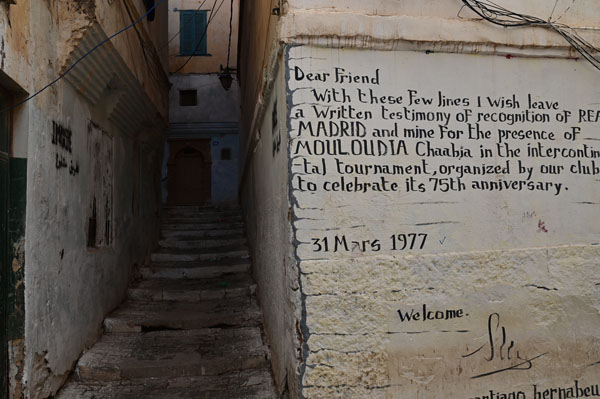 Dear Friend
With these Few lines I Wish leave
a Written testimony of recognition of REA
MADRID and mine for the presence of
MOULOUDIA Chaabia in the intercontin
tal tournament, organized by our club
to celebrate its 75th anniversary.
31 Mars 1977
Welcome.
santiago bernabeu